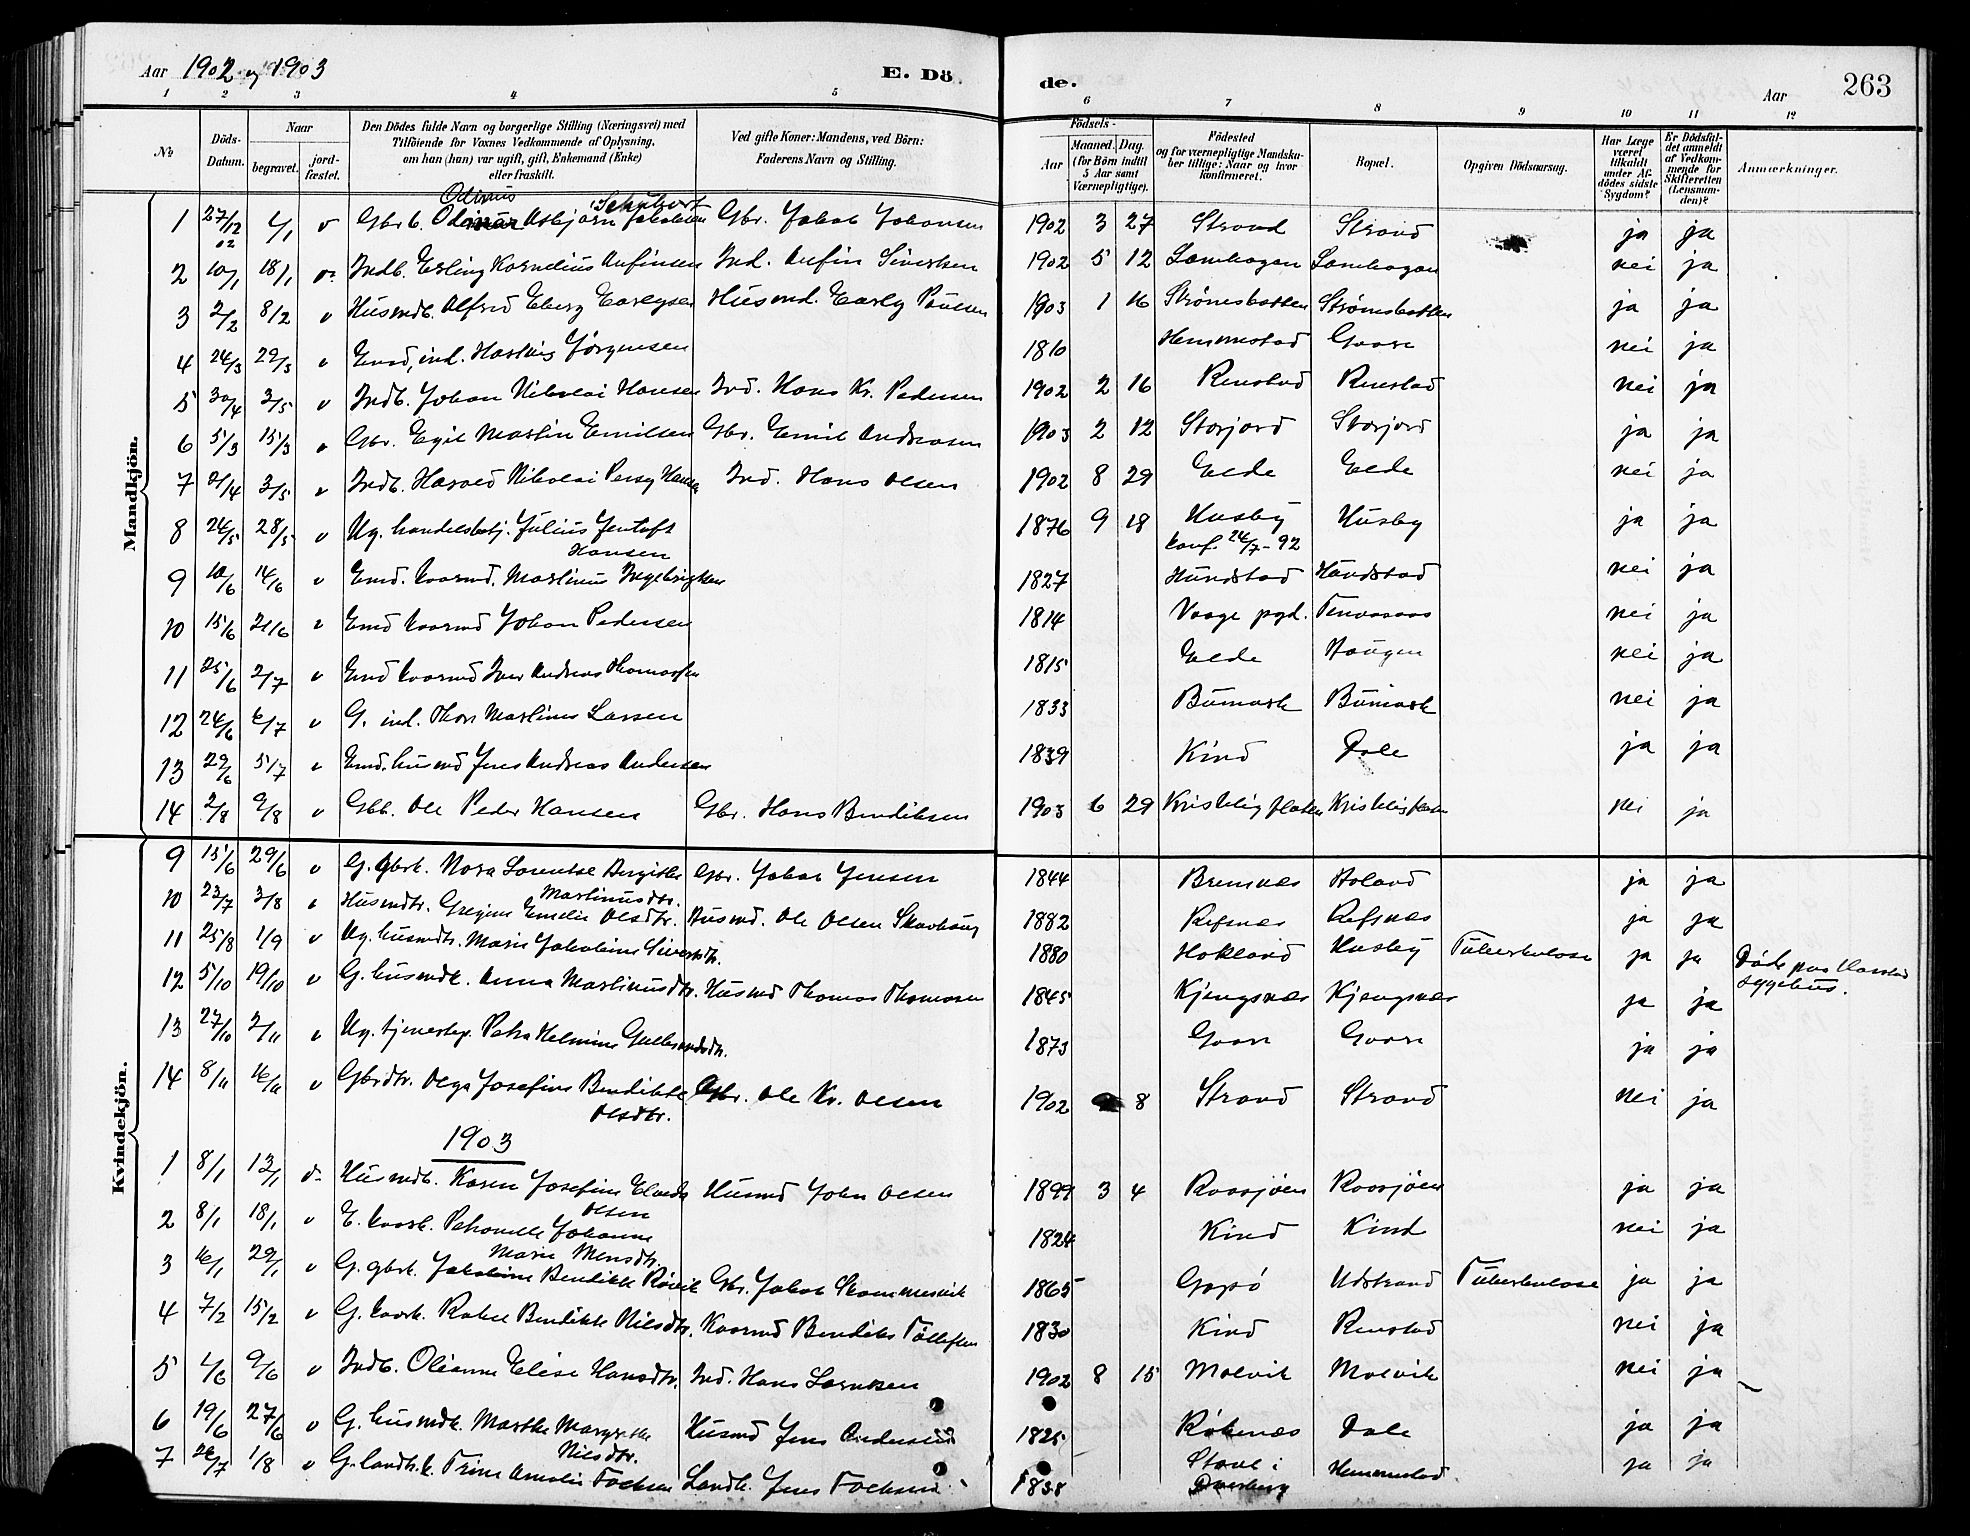 Aar 1902 og 1903
E. Dö
de.
Aar
263
1 2 3 4 5 6 7 8 9 10 11 12
№
Döds-Datum.
Naar
begravet.
jord-fæstet.
Den Dödes fulde Navn og borgerlige Stilling (Næringsvei) med
Tilföiende for Voxnes Vedkommende af Oplysning,
om han (hun) var ugift, gift, Enkemand (Enke)
eller fraskilt.
Ved gifte Koner: Mandens, ved Börn:
Faderens Navn og Stilling.
Födsels-
Aar
Maaned. Dag.
(for Börn indtil
5 Aar samt
Værnepligtige).
Födested
og for værnepligtige Mandsku-
ber tillige: Naar og hvor
konfirmeret.
Bopæl.
Opgiven Dödsaarsag.
Har Læge
været
tilkaldt
under Af-
dödes sidste
Sygdom?
Er Dödsfal-
det anmeldt
af Vedkom-
mende for
Skifteretten
(Lensman-
den)?
Anmærkninger.
Mandkjön.
1 27/12 02 4/1 Gbrb. Odinus Asbjørn Schulzert Jakobsen Gbr. Jakob Johansen 1902 3 27 Strand Strand ja ja
2 10/1 18/1 Indb. Erling Kornelius Anfinsen Ind. Anfin Sivertsen 1902 5 12 Lamhagen Lamhagen nei ja
3 2/2 8/2 Husmdb. Alfred Eberg Husmd. 1903 1 16 Strømsbotten Strømsbotten ja ja
4 24/3 29/3 ind. Hartvig Jørgensen 1810 Hemmestad nei ja
5 30/4 3/5 Indb. Johan Nikolai Hansen Ind. Hans Kr. Pedersen 1902 2 16 Renstad Renstad nei ja
6 5/3 15/3 Gbr. Egil Martin Emilsen Gbr. Emil Andreasen 1903 2 12 Storjord Storjord ja ja
7 21/4 3/5 Indb. Harald Nikolai Percy Hansen Ind. Hans Olsen 1902 8 29 Elde Elde nei ja
8 24/5 28/5 Ug. handelsbetj. Julius Jentoft 1876 9 18 Husby Husby ja ja
Hansen konf. 24/7-92
9 10/6 14/6 Emd. kaarmd. Martinus Ingebrigtsen 1827 Hundstad Hundstad nei ja
10 15/6 21/6 Emd kaarmd Johan Pedersen 1814 Vaage pgd. nei ja
11 25/6 2/7 Emd kaarmd Iver Andreas Thomassen 1815 Elde Haugen nei ja
12 24/6 6/7 G. ind. Thore Martinus Larsen 1833 Bumark Bumark nei ja
13 29/6 5/7 Emd. husmd Jens Andreas Andersen 1839 Kind Dale ja ja
14 2/8 9/8 Gbb. Ole Peder Hansen Gbr. Hans Bendiksen 1903 6 29 nei ja
Kvindekjön.
9 15/6 29/6 G. gbrk. Nora Lorentse Bergitte Gbr. Jakob Jensen 1844 Bremnes Aoland ja ja
Martinusdtr.
10 23/7 3/8 Husmdtr. Emelie Olsdtr. Husmd. Ole Olsen Skavhaug 1882 Refsnes Refsnes ja ja
11 25/8 1/9 Ug. husmdtr. Marie Jakobine Sivertsdtr. 1880 Hokland Husby Tuberkulose ja ja Døde paa Harstad
sygehus.
12 5/10 19/10 G. husmdk. Anna Martinusdtr. Husmd Thomas Thomasen 1845 Kjengsnes Kjengsnes ja ja
13 27/10 2/11 Ug. tjenestepg. Petra Helmine 1873 Gaare Gaare ja ja
14 8/11 16/11 Gbrdtr. Olga Josefine Bendikte Gbr. Ole Kr. Olsen 1902 8 Strand Strand nei ja
Olsdtr.
1903
1 8/1 12/1 Husmdb. Karen Josefine Husmd John Olsen 1899 3 4 ja ja
Olsen
2 8/1 18/1 E. kaark. Petronelle Johanne 1824 Kind Kind nei ja
Marie Monsdtr.
3 16/1 29/1 G. gbrk. Jakobine Bendikte Gbr. Jakob 1865 Gapø Udstrand Tuberkulose ja ja
4 7/2 15/2 G. kaark. Rakel Bendikte Nilsdtr. Kaarmd Bendiks Tollefsen 1830 Kind Renstad nei ja
5 1/6 9/6 Indb. Olianne Elise Hansdtr. Ind. Hans Larntsen 1902 8 15 Molvik Molvik nei ja
6 19/6 27/6 G. husmdk. Marthe Margrethe Husmd Jens Andersen 1825 Røkenes Dale ja ja
Nilsdtr.
7 26/7 1/8 G. landh.k. Trine Amalie Landh. Jens 1838 Stave i Hemmestad ja ja
Dverberg